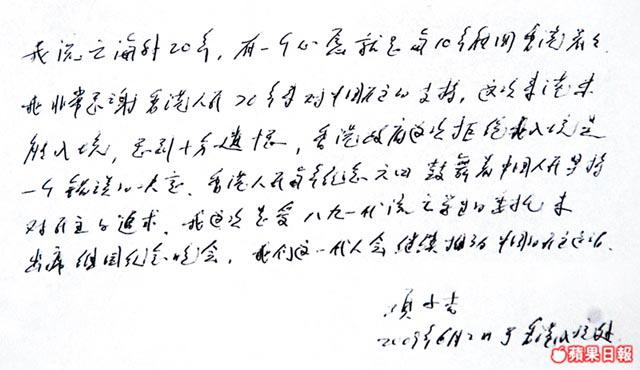 我流亡海外20年，有一个心愿就是 10年 回香港看看
我非常感谢香港人民20年来对中国民主的支持，这次来港未
能入境，感到十分遗憾，香港政府这次拒绝我入境是
一个错误的决定。香港人民每年纪念六四鼓舞着中国人民坚持
对民主的追求。我这次是受八九一代流亡学生的委托来
出席维园纪念晚会，我们这一代人会继续推动中国的民主运动.
项小吉
2009年6月 于香港入境处
蘋果日報